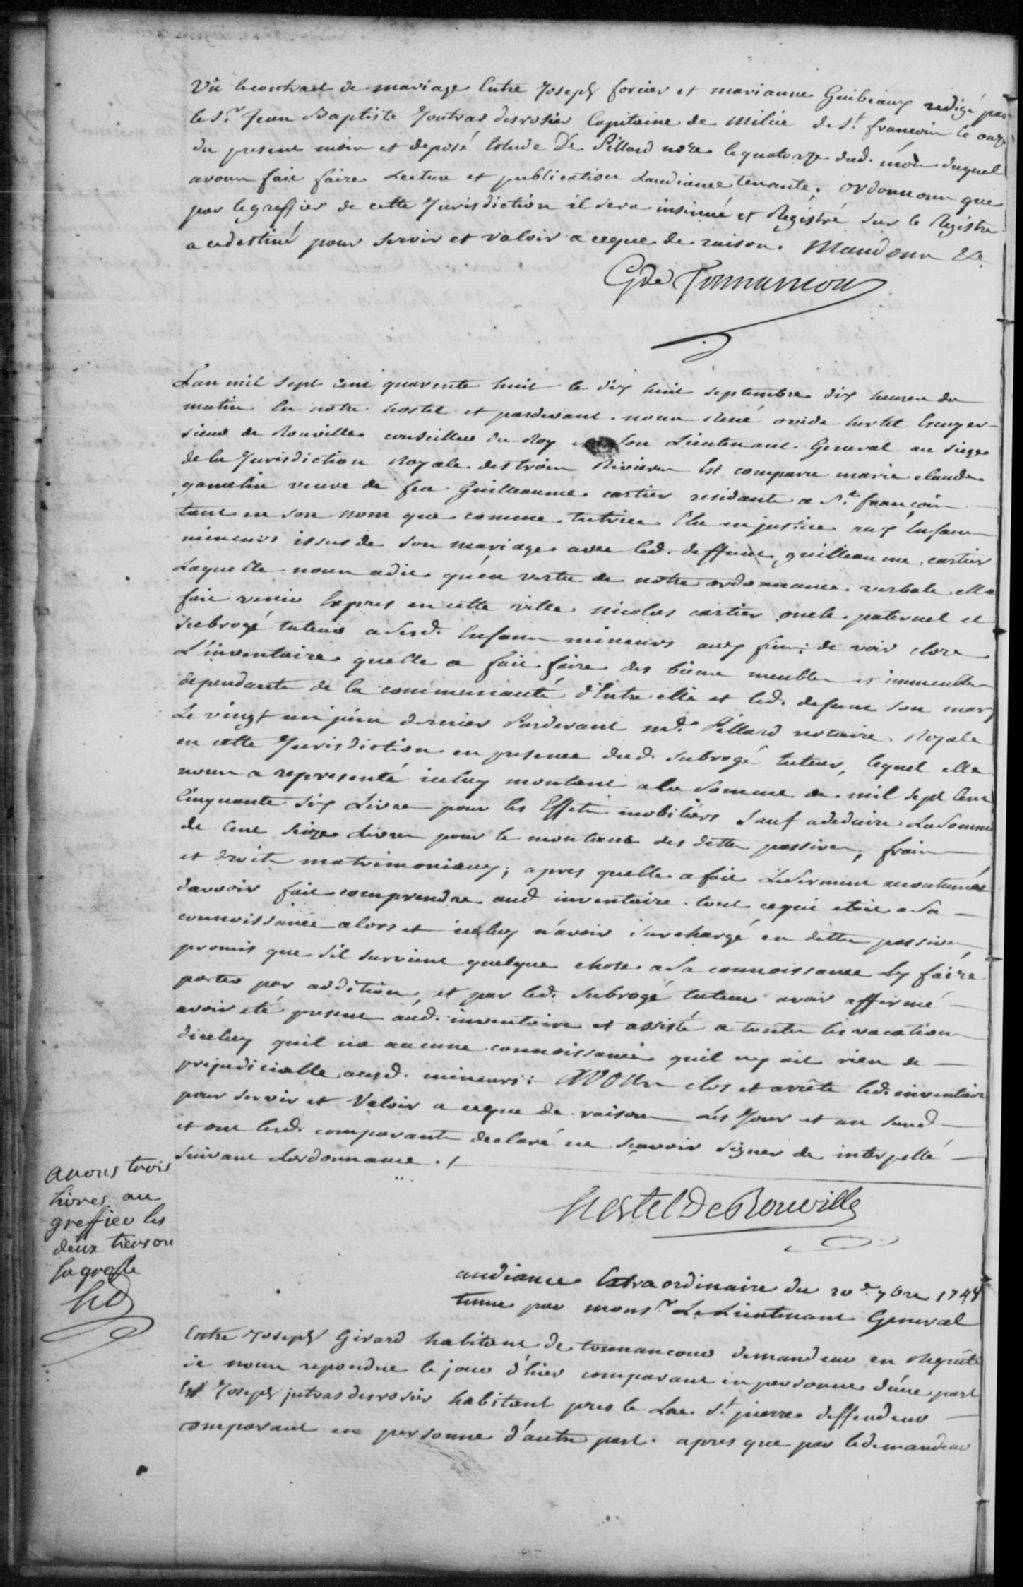 Vû le contract de mariage Entre Joseph forcier et marianne Guibiaux redigé par
le Sr. Jean Baptiste Joutras desrosier Capitaine de Milice de St. francois le onze
du present mois et deposé Estude De Pillard nore. le quatorze dud. mois duquel
avons fait faire Lecture et publication Laudiance tenante. ordonnons que
par le greffier de cette Jurisdiction il sera insinué et Registré sur le Registre
a ce destiné pour servir et valoir a ceque de raison. Mandons &a.
Gde Tonnancour
L'an mil sept cent quarente huit le dix huit septembre dix heures du
matin En notre hostel et pardevant nous René ovide hertel Escuyer
sieur de Rouville conseiller du Roy et son Lieutenant General au siege
de la Jurisdiction Royale des trois Rivieres Est comparu marie claude
gamelin veuve de feu Guilleaume cartier residante a St. francois
tant en son nom que comme tutrice Elue en justice aux Enfans
mineurs issus de son mariage avec led. deffunt guilleaume cartier
Laquelle nous a dit qu'en vertu de notre ordonnance verbale elle a
fait venir Expres en cette ville nicolas cartier oncle paternel et
subrogé tuteur a sesd. Enfans mineurs aux fins de voir clore
L'inventaire quelle a fait faire des biens meubles et immeubles
dependants de la communauté d'Entre elle et led. defunt son mary
Le vingt un juin dernier Pardevant me. Pillard notaire Royale
en cette Jurisdiction en presence dud. subrogé tuteur, lequel elle
nous a representé iceluy montant a la somme de mil sept Cent
Cinquante six Livres pour les Effets mobiliers sauf a deduire La Somme
de Cent seize Livres pour le montant des dettes passives, frais
et droits matrimoniaux; apres quelle a fait Le Serment accoutumé
d'avoir fait comprendre aud. inventaire tout cequi etoit a Sa
connoissance alors et iceluy n'avoir surchargé en dettes passives
promis que s'il survient quelque chose a Sa connoissance Ly faire
porter par addition, et par led. subrogé tuteur avoir affirmé
avoir été present aud. inventaire et assisté a toutes les vacations
d'iceluy quil n'a aucune connoissance quil ny ait rien de
prejudiciable ausd. mineurs: AVONS clos et arrêté led. inventaire
pour servir et Valoir a ceque de raison Les Jour et an susd.
et ont lesd. comparants declaré ne scavoir signer de interpellé
suivant Lordonnance ./.
avons trois
livres au
greffier les
deux tiers ou
la grosse
HD
hertel De Rouville
audiance Extraordinaire du 20e. 7bre 1748
tenue par monsr. Le Lieutenant General
Entre Joseph Girard habitant de tonnancour demandeur en Requête
de nous repondue le jour d'hier comparant en personne d'une part
Et Joseph jutras desrosier habitant pres le Lac St. pierre deffendeur
comparant en personne d'autre part. apres que par le demandeur